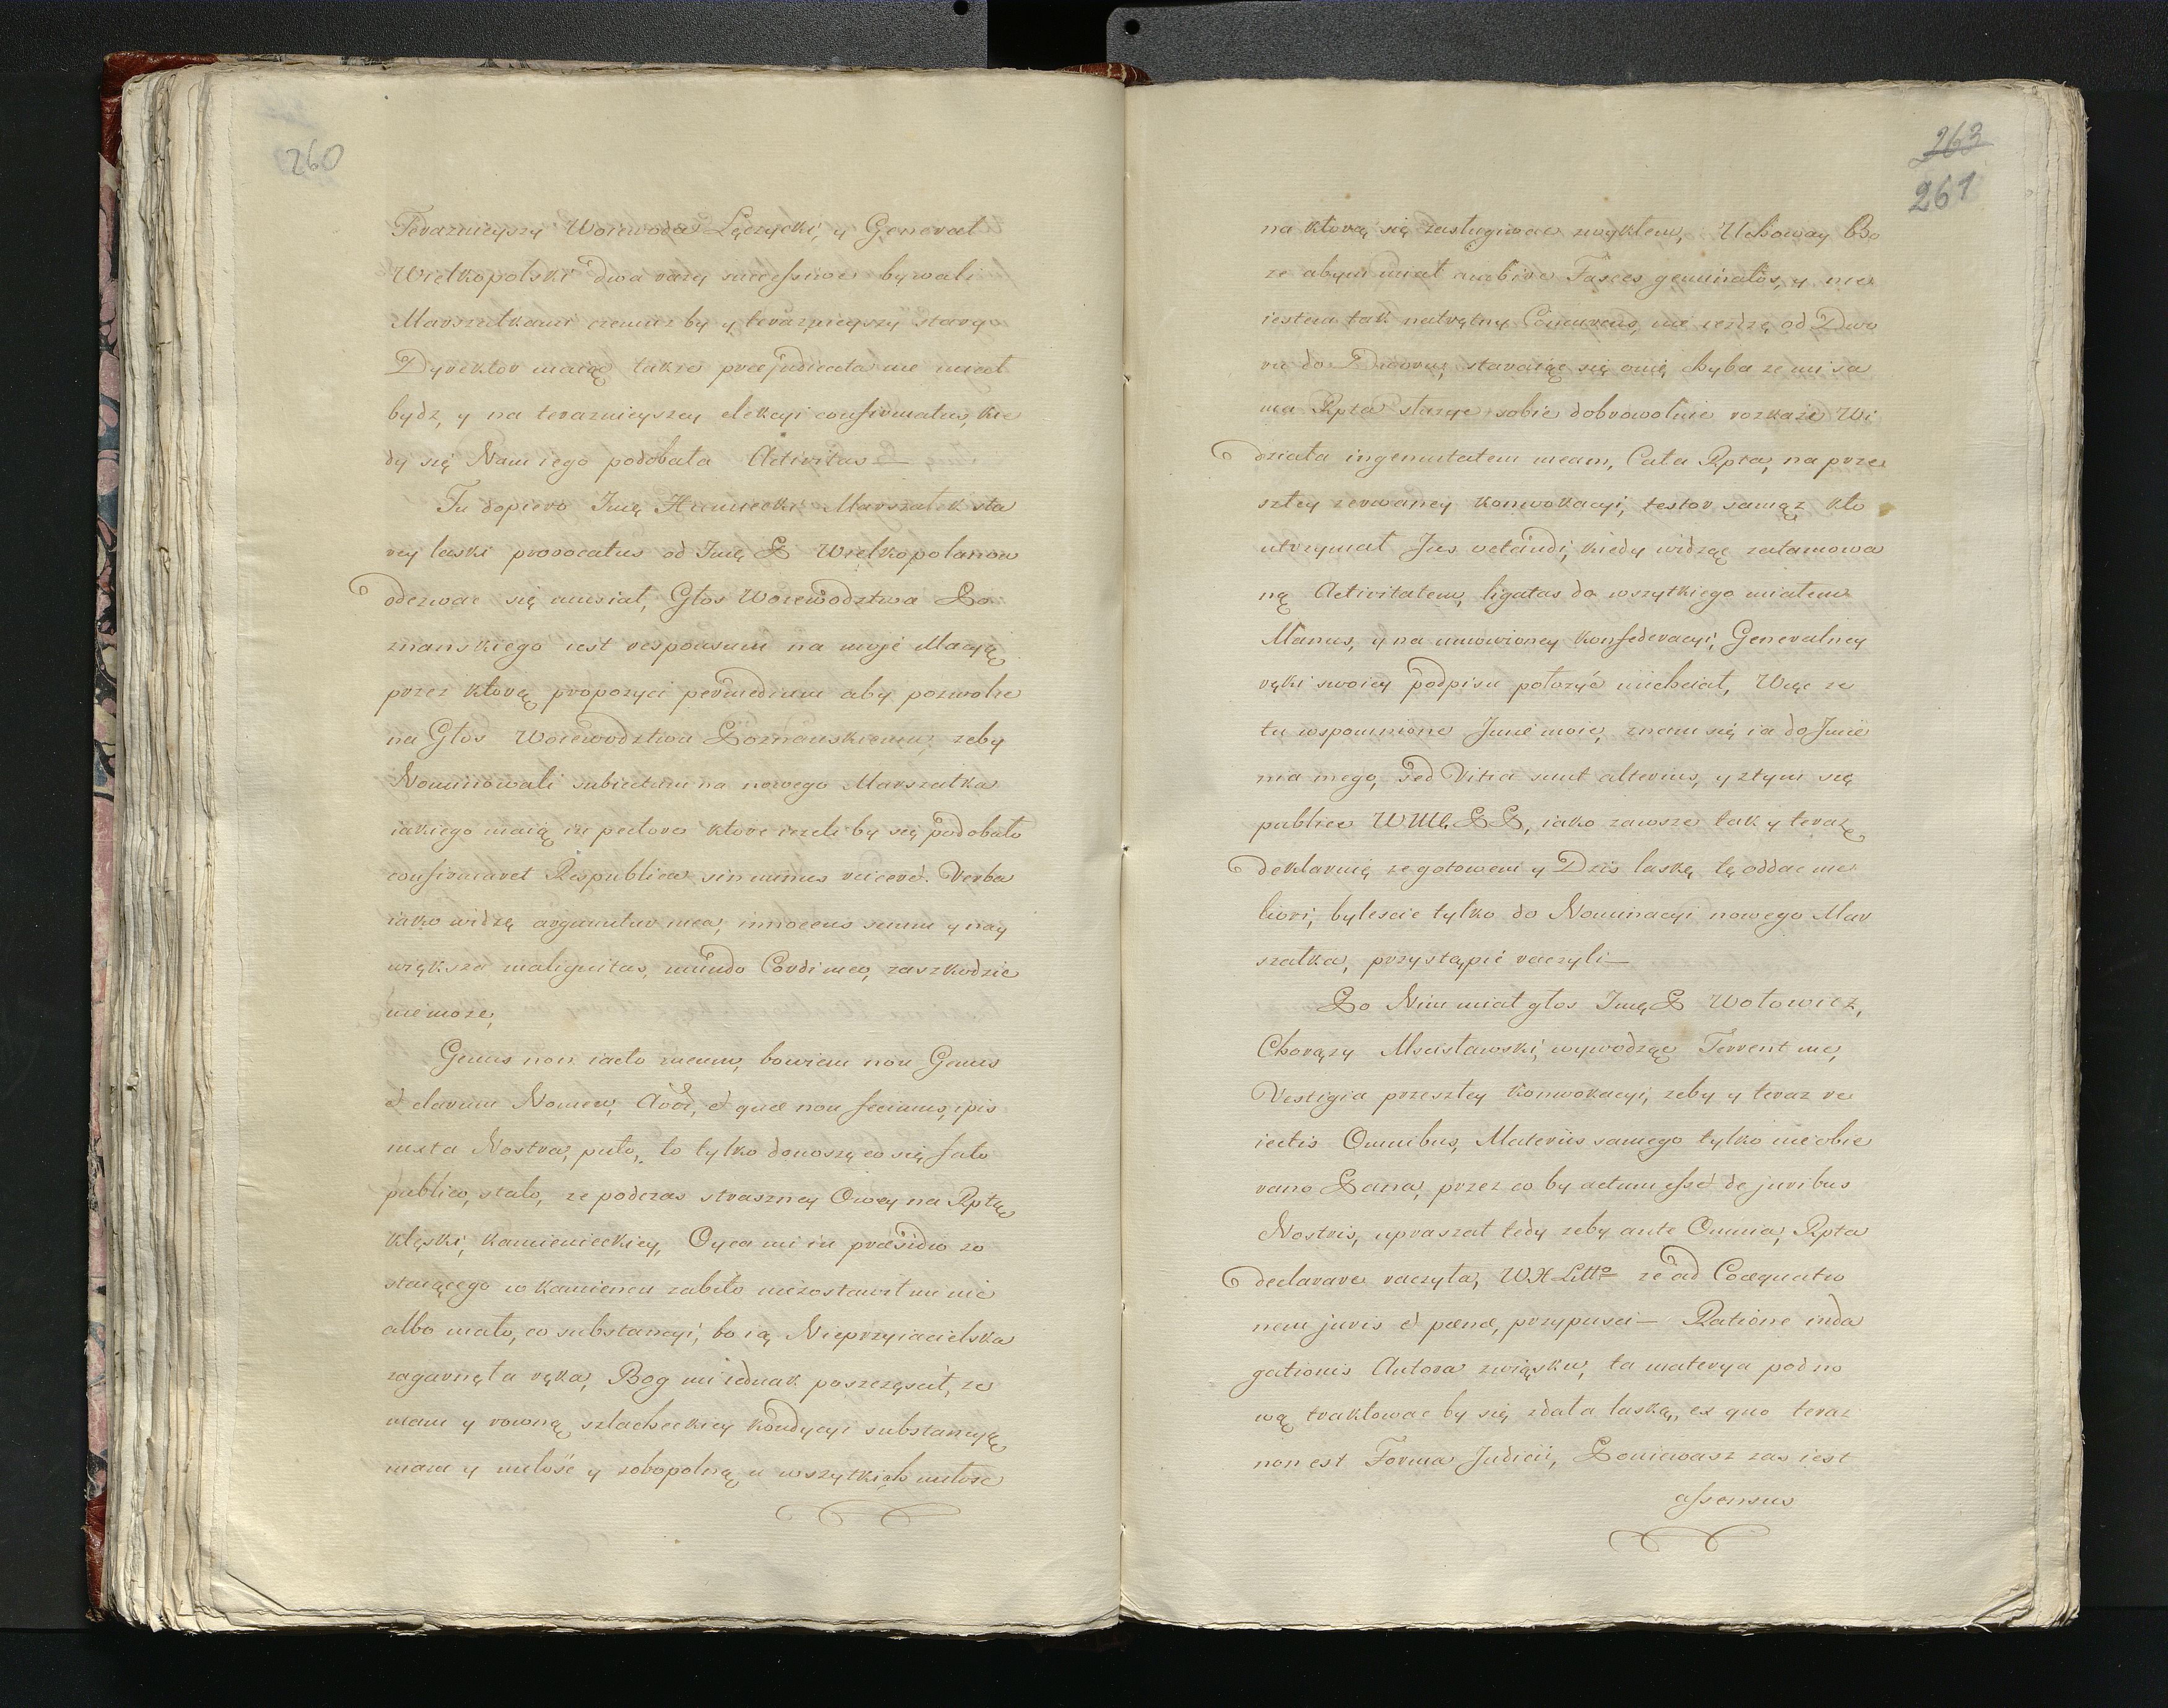 260
Teraznieyszy Woiewoda Lęczycki, y Generał
Wielkopolski dwa razy succeſsive bywali
Marszałkami czemuz by y teraznieyszy stary
Dyrektor maiąc takie præjudicata nie miał
bydz, y na teraznieyszey elekcyi confirmatus, kie
dy się Nam iego podobała Activitas —
Tu dopiero Imę Humiecki Marszałek sta
rey laski provocatus od Imę P Wielkopolanow
odezwac się musiał, Głos Woiewodztwa Po
znanskiego iest responsum na moję Macyą
przez ktorą propozyci permedium aby pozwolic
na Głos Woiewodztwu Poznanskiemu, zeby
Nominowali subiectum na nowego Marszałka
iakiego maią in pectore ktore iezeli by się podobało
confirmaret Respublica sin minus reicere. Verba
iako widzę arguuntur mea, innocens sum y nay
większa malignitas, mundo Cordi meo, zaszkodzic
nie moze,
Genus non iacto meum, bowiem non Genus
et clarum Nomen, et quæ non fecimus, ipsi
nostra, puto, to tylko donoszę co się fato
publico, stało, ze podczas straszney Owey na Rptę
klęski, kamienieckiey, Oyca mi in præsidio zo
staiącego w kamiencu zabito niezostawił mi nic
albo mało, co substancyi, bo ią Nieprzyiacielska
zagarnęła ręka, Bog mi iednak poszczęscił, ze
mam y rowną szlacheckiey kondycyi substancyą
mam y miłość y zobopolną u wszytkich miłosc
263
261
na ktorą się zasługiwac zwykłem, Uchoway Bo
ze abym miał ambire Fasces geminatos, y nie
iestem tak natrętny Concurens, nie iezdzę od Dwo
ru do Dworu, staraiąc się onię, chyba ze mi sa
ma Rpta starye sobie dobrowolnie rozkaze Wi
działa ingenuitatem meam, Cała Rpta, na prze
szłey zerwaney konwokacyi, testor samąz kto
utrzymał Jus vetandi, kiedy widząc zatamowa
ną Activitatem, ligatas do wszytkiego miałem
Manus, y na umowioney konfederacyi, Generalney
ręki swoiey podpisu położyć niechciał, Więc ze
tu wspomnione Imie moie, znam się ia do Imie
nia mego, sed Vitia sunt alterius, y z tym się
publice WMĘ PP, iako zawsze tak y teraz
deklaruię ze gotowem y Dzis laskę tę oddac me
liori, bylescie tylko do Nominacyi nowego Mar
szałka, przystąpić raczyli —
Po Nim miał głos Imę P Wołowicz,
Chorązy Mscisławski, wywodząc Terrent me,
Vestigia przeszłey konwokacyi, zeby y teraz re
iectis Omnibus, Materiis samego tylko nieobie
rano Pana, przez co by actum eſse de juribus
Nostris, upraszał tedy zeby ante Omnia, Rpta
declarare raczyła, WX Litto ze ad Coæquatio
nem juris et pœnæ, przypusci — Ratione inda
gationis Autora związku, ta materya pod no
wą traktowac by się zdała laską, ex quo teraz
non est Forma Judicii, Poniewasz zas iest
aſsensus